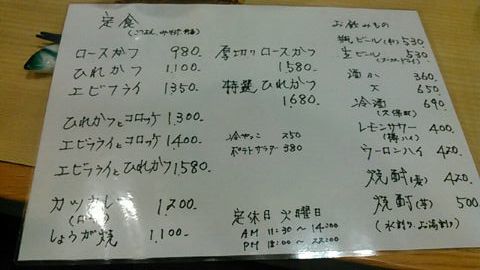 定食
(ごはん、みそ汁、付)
ロースかつ 980.
ひれかつ 1.100-
エビフライ 1350.
ひれかつとコロッケ 1.300
エビフライとコロッケ 1400-
エビフライとひれかつ 1.580
カツカレー 1.200
しょうが焼 1.100-
厚切りロースかつ
1580-
特選ひれかつ
1680-
冷やっこ 250
ポテトサラダ 380
定休日 火曜日
AM 11:30〜14:00
PM 18:00〜22:00
お飲みもの
瓶ビール(中) 530
生ビール 530
(スーパードライ)
酒 小 360.
大 650
冷酒 690
レモンサワー 400.
(樽ハイ)
ウーロンハイ 420.
焼酎(麦) 420-
焼酎(芋) 500
(水割り、お湯割り)